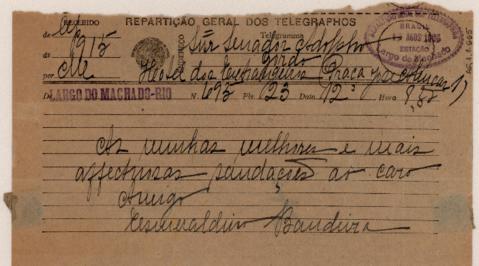 RECEBIDO
REPARTIÇÃO GERAL DOS TELEGRAPHOS
de
Telegramma
Snr Senador Adolpho
BRASIL
de 1915
Gordo
12 AGO
ESTAÇÃO
Largo do Machado
por
Hotel dos Estrangeiros (Praça José Alencar 1)
De LARGO DO MACHADO-RIO N. 695 Pls. 23 Data 12 Hora 8,55
As minhas melhores e mais
affectuosas saudações ao caro
Amigo
Esmeraldino Bandeira